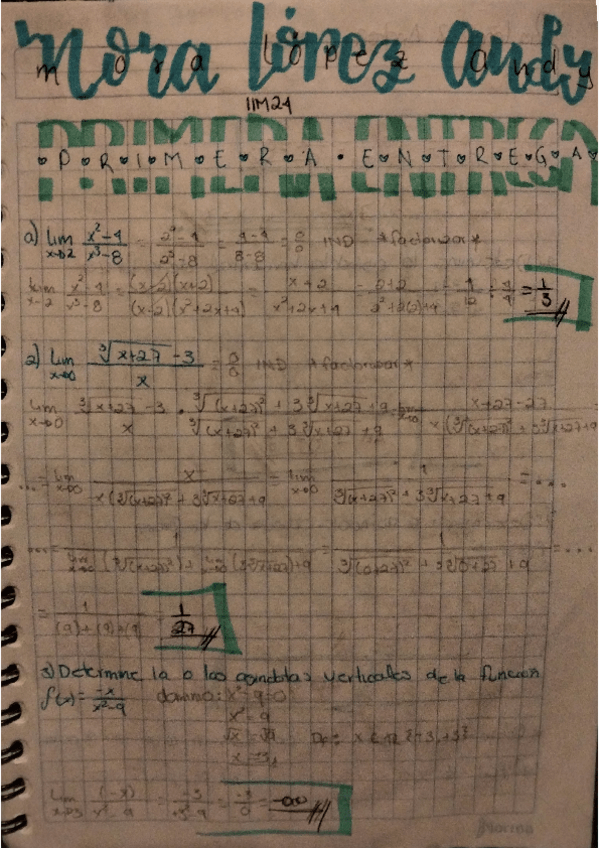 Mora López Andy
m o r a L ó p e z A n d y
11M24
PRIMERA ENTREGA
• P • R • I • M • E • R • A • E • N • T • R • E • G • A
a) lim x→2 x²-4 / x³-8 = 2²-4 / 2³-8 = 4-4 / 8-8 = 0/0 IND *factorizar*
lim x→2 x²-4 / x³-8 = (x-2)(x+2) / (x-2)(x²+2x+4) = x+2 / x²+2x+4 = 2+2 / 2²+2(2)+4 = 4/12 ÷ 4/4 = 1/3
2) lim x→0 ∛x+27 -3 / x = 0/0 IND *factorizar*
lim x→0 ∛x+27 -3 / x · ∛(x+27)² + 3∛x+27 +9 / ∛(x+27)² + 3∛x+27 +9 = lim x→0 x+27-27 / x(∛(x+27)² + 3∛x+27+9
... = lim x→0 x / x(∛(x+27)² + 3∛x+27+9 = lim x→0 1 / ∛(x+27)² + 3∛x+27 +9 = ...
... = 1 / lim x→0 (∛(x+27)²) + lim x→0 (3∛x+27)+9 = 1 / ∛(0+27)² + 3∛0+27 +9 = ...
= 1 / (9)+(9)+9 = 1/27
3) Determine la o las asindotas verticales de la función
f(x)= -x / x²-9 dominio: x²-9=0
x² = 9
√x = √9
x = 3
Df: x ∈ R {-3,+3}
lim x→3 (-x) / x²-9 = -3 / 3²-9 = -3/0 = -∞
Norma